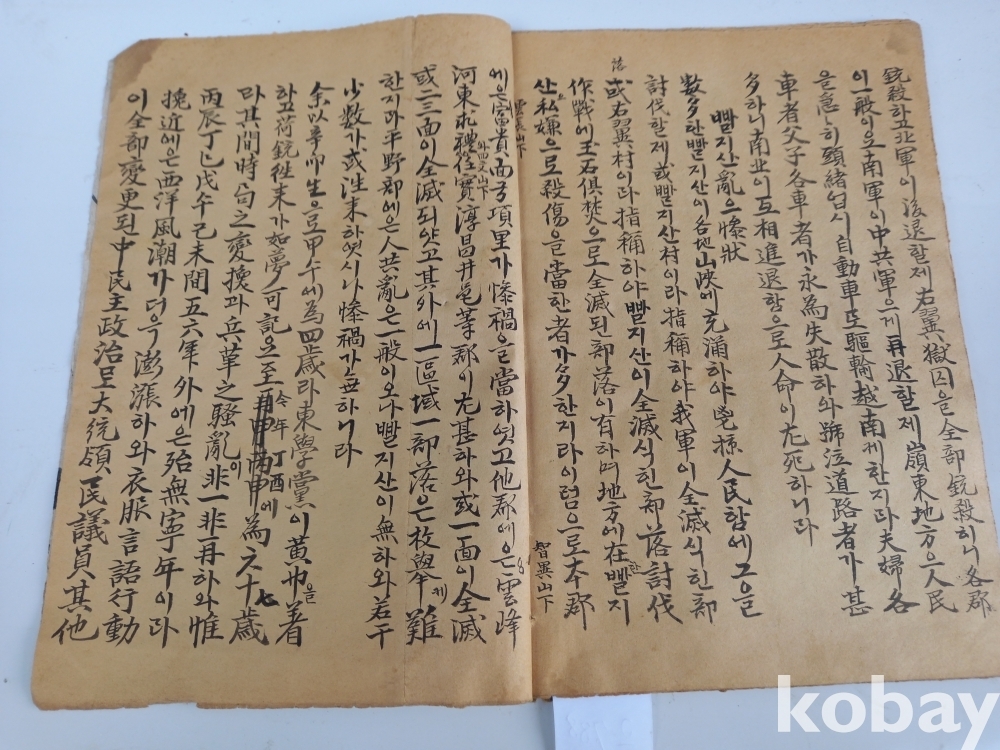 銃殺하고北軍이後退할제右翼獄囚을全部銃殺하니各郡
이一般이오南軍이中共軍으게再退할제嶺東地方으人民
을急히頭緖업시自動車로驅輸越南케한지다夫婦各
車者父子各車者가永為失散하와號泣道路者가甚
多하니南北이互相進退함으로人命이尤死하니다
빨지산亂으慘狀
數多한빨지산이各地山峽에充涌하야聖掠人民함에그을
討伐할제或빨지산村이라指稱하야我軍이全滅식힌部
落
或右翼村이라指稱하야빨지산이全滅식힌部落討伐
作戰에玉石俱焚으로全滅된部落이有하며地方에在한빨지
산으私嫌으로殺傷을當한者가多한지라이럼으로本郡
智異山下
雲長山下
에은富貴面弓項里가慘禍을當하엿고他郡에은雲峰
河東求禮任實淳昌井邑等郡이尤甚하와或一面이全滅
外四文山下
或二三面이全滅되얏고其外에一區域一部落은枚擧에難
한지라平野郡에은人共亂은一般이오나빨지산이無하와若干
少數가或往來하엿시나慘禍가無하니라
余以辛卯生으로甲午에為四歲라東學黨이黃巾을着
하고荷銃徃來가如夢可記으至今年丁酉에為六十七歲
라其間時局之變換과兵革之騷亂이非一非再하와惟
丙辰丁巳戊午己未間五六年外에은殆無寧年이다
挽近에은西洋風潮가더욱澎漲하와衣服言語行動
이全部變更된中民主政治로大統領民議員其他
kobay